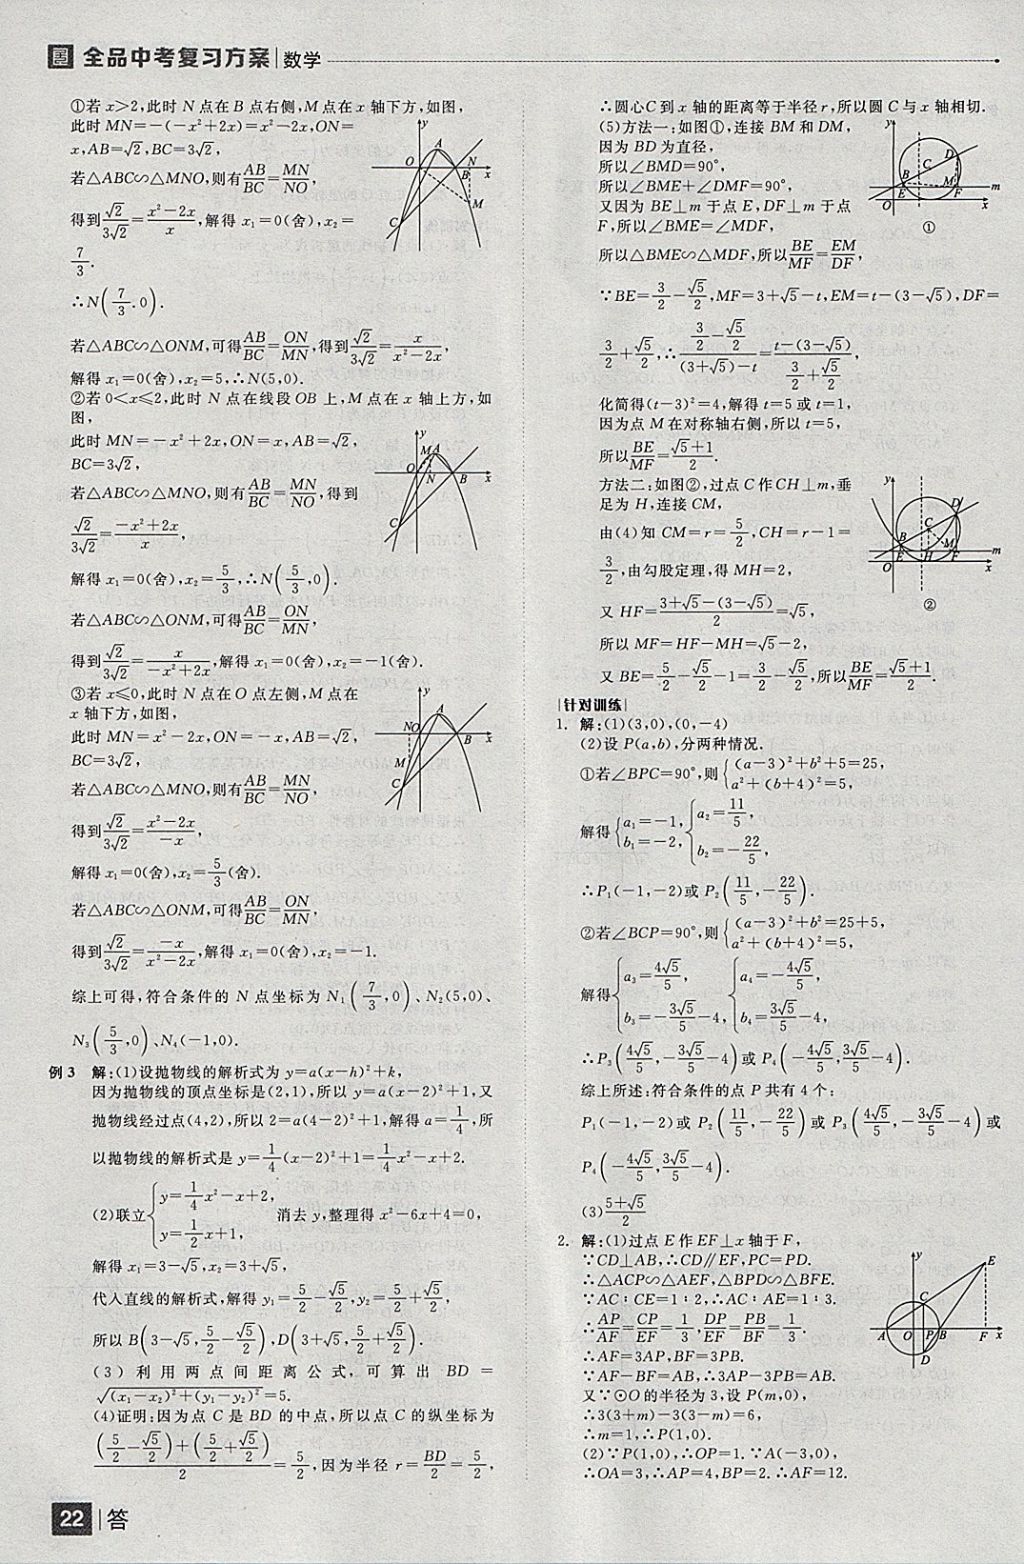 全品中考复习方案 数学
①若 x>2,此时 N 点在 B 点右侧,M 点在 x 轴下方,如图,
此时 MN=-(-x²+2x)=x²-2x,ON=
x,AB=√2,BC=3√2,
若△ABC∽△MNO,则有AB/BC=MN/NO,
得到√2/3√2=(x²-2x)/x,解得 x₁=0(舍),x₂=
7/3.
∴N(7/3,0).
若△ABC∽△ONM,可得AB/BC=ON/MN,得到√2/3√2=x/(x²-2x),
解得 x₁=0(舍),x₂=5,∴N(5,0).
②若 0<x≤2,此时 N 点在线段 OB 上,M 点在 x 轴上方,如
图,
此时 MN=-x²+2x,ON=x,AB=√2,
BC=3√2,
若△ABC∽△MNO,则有AB/BC=MN/NO,得到
√2/3√2=(-x²+2x)/x,
解得 x₁=0(舍),x₂=5/3,∴N(5/3,0).
若△ABC∽△ONM,可得AB/BC=ON/MN,
得到√2/3√2=x/(-x²+2x),解得 x₁=0(舍),x₂=-1(舍).
③若 x≤0,此时 N 点在 O 点左侧,M 点在
x 轴下方,如图,
此时 MN=x²-2x,ON=-x,AB=√2,
BC=3√2,
若△ABC∽△MNO,则有AB/BC=MN/NO,
得到√2/3√2=(x²-2x)/(-x),
解得 x₁=0(舍),x₂=5/3(舍).
若△ABC∽△ONM,可得AB/BC=ON/MN,
得到√2/3√2=(-x)/(x²-2x),解得 x₁=0(舍),x₂=-1.
综上可得,符合条件的 N 点坐标为 N₁(7/3,0)、N₂(5,0)、
N₃(5/3,0)、N₄(-1,0).
例 3 解:(1)设抛物线的解析式为 y=a(x-h)²+k,
因为抛物线的顶点坐标是(2,1),所以 y=a(x-2)²+1,又
抛物线经过点(4,2),所以 2=a(4-2)²+1,解得 a=1/4,所
以抛物线的解析式是 y=1/4(x-2)²+1=1/4x²-x+2.
(2)联立{y=1/4x²-x+2, y=1/2x+1, 消去 y,整理得 x²-6x+4=0,
解得 x₁=3-√5,x₂=3+√5,
代入直线的解析式,解得 y₁=5/2-√5/2,y₂=5/2+√5/2,
所以 B(3-√5,5/2-√5/2),D(3+√5,5/2+√5/2).
(3)利用两点间距离公式,可算出 BD=
√((x₁-x₂)²+(y₁-y₂)²)=5.
(4)证明:因为点 C 是 BD 的中点,所以点 C 的纵坐标为
((5/2-√5/2)+(5/2+√5/2))/2=5/2,因为半径 r=BD/2=5/2,
∴圆心 C 到 x 轴的距离等于半径 r,所以圆 C 与 x 轴相切.
(5)方法一:如图①,连接 BM 和 DM,
因为 BD 为直径,
所以∠BMD=90°,
所以∠BME+∠DMF=90°,
又因为 BE⊥m 于点 E,DF⊥m 于点
F,所以∠BME=∠MDF,
所以△BME∽△MDF,所以BE/MF=EM/DF,
∵BE=3/2-√5/2,MF=3+√5-t,EM=t-(3-√5),DF=
3/2+√5/2,∴(3/2-√5/2)/((3+√5)-t)=(t-(3-√5))/(3/2+√5/2),
化简得(t-3)²=4,解得 t=5 或 t=1,
因为点 M 在对称轴右侧,所以 t=5,
所以BE/MF=(√5+1)/2.
方法二:如图②,过点 C 作 CH⊥m,垂
足为 H,连接 CM,
由(4)知 CM=r=5/2,CH=r-1=
3/2,由勾股定理,得 MH=2,
又 HF=(3+√5-(3-√5))/2=√5,
所以 MF=HF-MH=√5-2,
又 BE=5/2-√5/2-1=3/2-√5/2,所以BE/MF=(√5+1)/2.
|针对训练|
1. 解:(1)(3,0),(0,-4)
(2)设 P(a,b),分两种情况.
①若∠BPC=90°,则{(a-3)²+b²+5=25, a²+(b+4)²=5,
解得{a₁=-1, b₁=-2, {a₂=11/5, b₂=-22/5,
∴P₁(-1,-2)或 P₂(11/5,-22/5).
②若∠BCP=90°,则{(a-3)²+b²=25+5, a²+(b+4)²=5,
解得{a₃=4√5/5, b₃=-3√5/5-4, {a₄=-4√5/5, b₄=3√5/5-4,
∴P₃(4√5/5,-3√5/5-4)或 P₄(-4√5/5,3√5/5-4).
综上所述:符合条件的点 P 共有 4 个:
P₁(-1,-2)或 P₂(11/5,-22/5)或 P₃(4√5/5,-3√5/5-4)或
P₄(-4√5/5,3√5/5-4).
(3)(5+√5)/2
2. 解:(1)过点 E 作 EF⊥x 轴于 F,
∵CD⊥AB,∴CD∥EF,PC=PD.
∴△ACP∽△AEF,△BPD∽△BFE.
∵AC∶CE=1∶2,∴AC∶AE=1∶3.
∴AP/AF=CP/EF=1/3,DP/EF=PB/BF=1/3.
∴AF=3AP,BF=3PB.
∵AF-BF=AB,∴3AP-3PB=AB.
又∵⊙O 的半径为 3,设 P(m,0),
∴3(3+m)-3(3-m)=6,
∴m=1,∴P(1,0).
(2)∵P(1,0),∴OP=1.∵A(-3,0),
∴OA=3,∴AP=4,BP=2.∴AF=12.
22 答